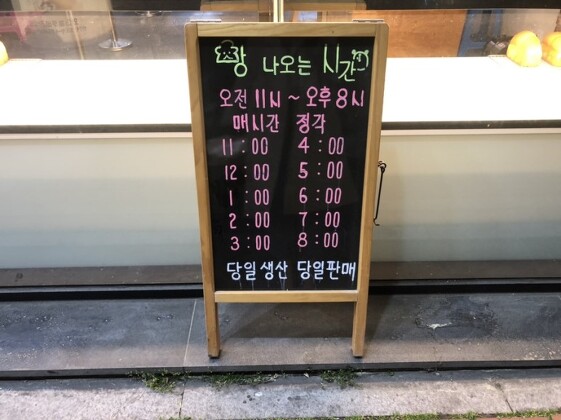 빵 나오는 시간
오전 11시 ~ 오후 8시
매시간 정각
11 : 00 4 : 00
12 : 00 5 : 00
1 : 00 6 : 00
2 : 00 7 : 00
3 : 00 8 : 00
당일생산 당일판매